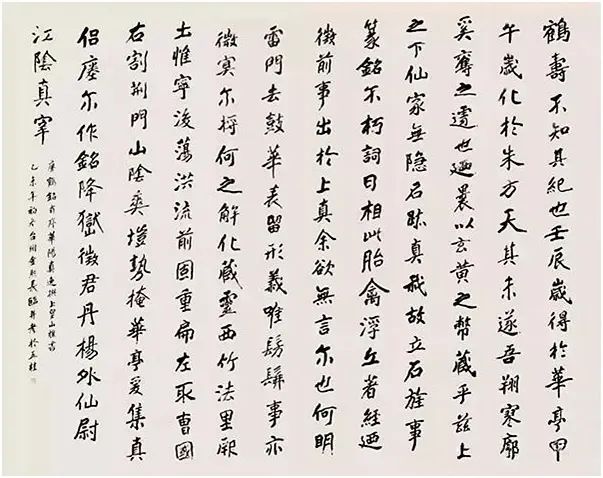 鶴壽不知其紀也壬辰歲得於華亭甲
午歲化於朱方天其未遂吾翔寥廓
奚奪之遽也廼裹以玄黃之幣藏乎茲上
之下仙家無隐石跡真我故立石旌事
篆銘不朽詞曰相此胎禽浮丘著經廼
徵前事出於上真余欲無言尔也何明
雷門去鼓華表留形義唯髣髴事亦
微冥尔将何之解化藏靈西竹法里厥
土惟寧後蕩洪流前固重扃左取曹國
右割荆門山陰爽塏勢掩華亭爰集真
侣瘞尔作銘降嶽徵君丹楊外仙尉
江陰真宰
瘞鶴銘有序華陽真逸撰上皇山樵書
乙未年初冬台州金長臨并書於五桂